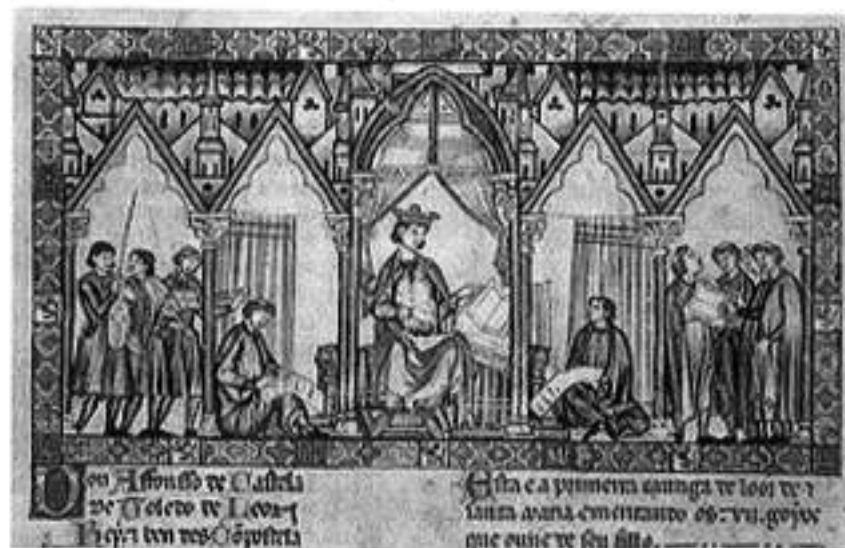 Don Affonsso de Castela
de Toledo de Leon ⁊
Rey ⁊ ben des Cõpostela
Esta e a primeira cantiga de loor de
santa maria ementando os .vii. goyos
que ouue de seu fillo.